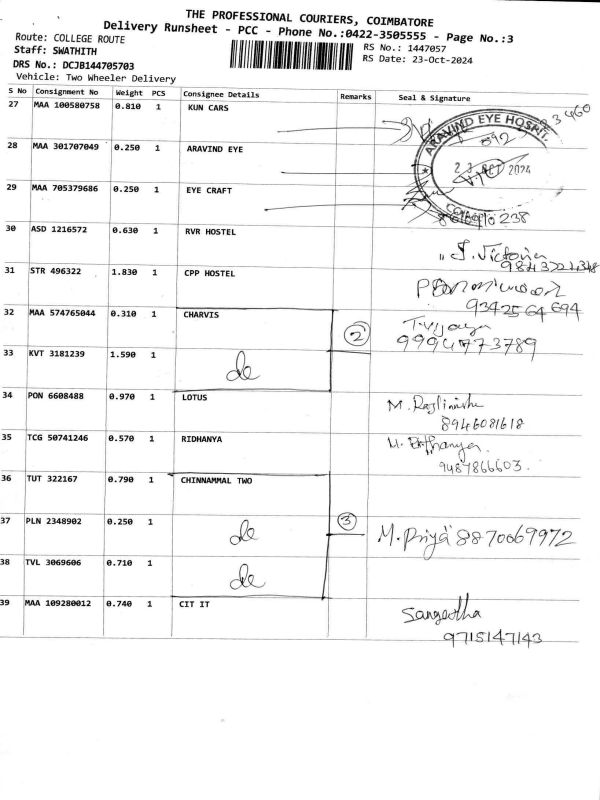 THE PROFESSIONAL COURIERS, COIMBATORE
Delivery Runsheet - PCC - Phone No.:0422-3505555 - Page No.:3
Route: COLLEGE ROUTE
RS No.: 1447057
Staff: SWATHITH
RS Date: 23-Oct-2024
DRS No.: DCJB144705703
Vehicle: Two Wheeler Delivery
S No Consignment No Weight PCS Consignee Details Remarks Seal & Signature
27 MAA 100580758 0.810 1 KUN CARS
ARAVIND EYE HOSPIT
28 MAA 301707049 0.250 1 ARAVIND EYE
23 OCT 2024
29 MAA 705379686 0.250 1 EYE CRAFT
30 ASD 1216572 0.630 1 RVR HOSTEL
J. Victoria
31 STR 496322 1.830 1 CPP HOSTEL
9342564694
32 MAA 574765044 0.310 1 CHARVIS
2
T.vijaya
9994773789
33 KVT 3181239 1.590 1 do
34 PON 6608488 0.970 1 LOTUS
M.
8946081618
35 TCG 50741246 0.570 1 RIDHANYA
M.
9487866603.
36 TUT 322167 0.790 1 CHINNAMMAL TWO
37 PLN 2348902 0.250 1 do 3 M. Priya 8870069972
38 TVL 3069606 0.710 1 do
39 MAA 109280012 0.740 1 CIT IT
Sangeetha
9715147143